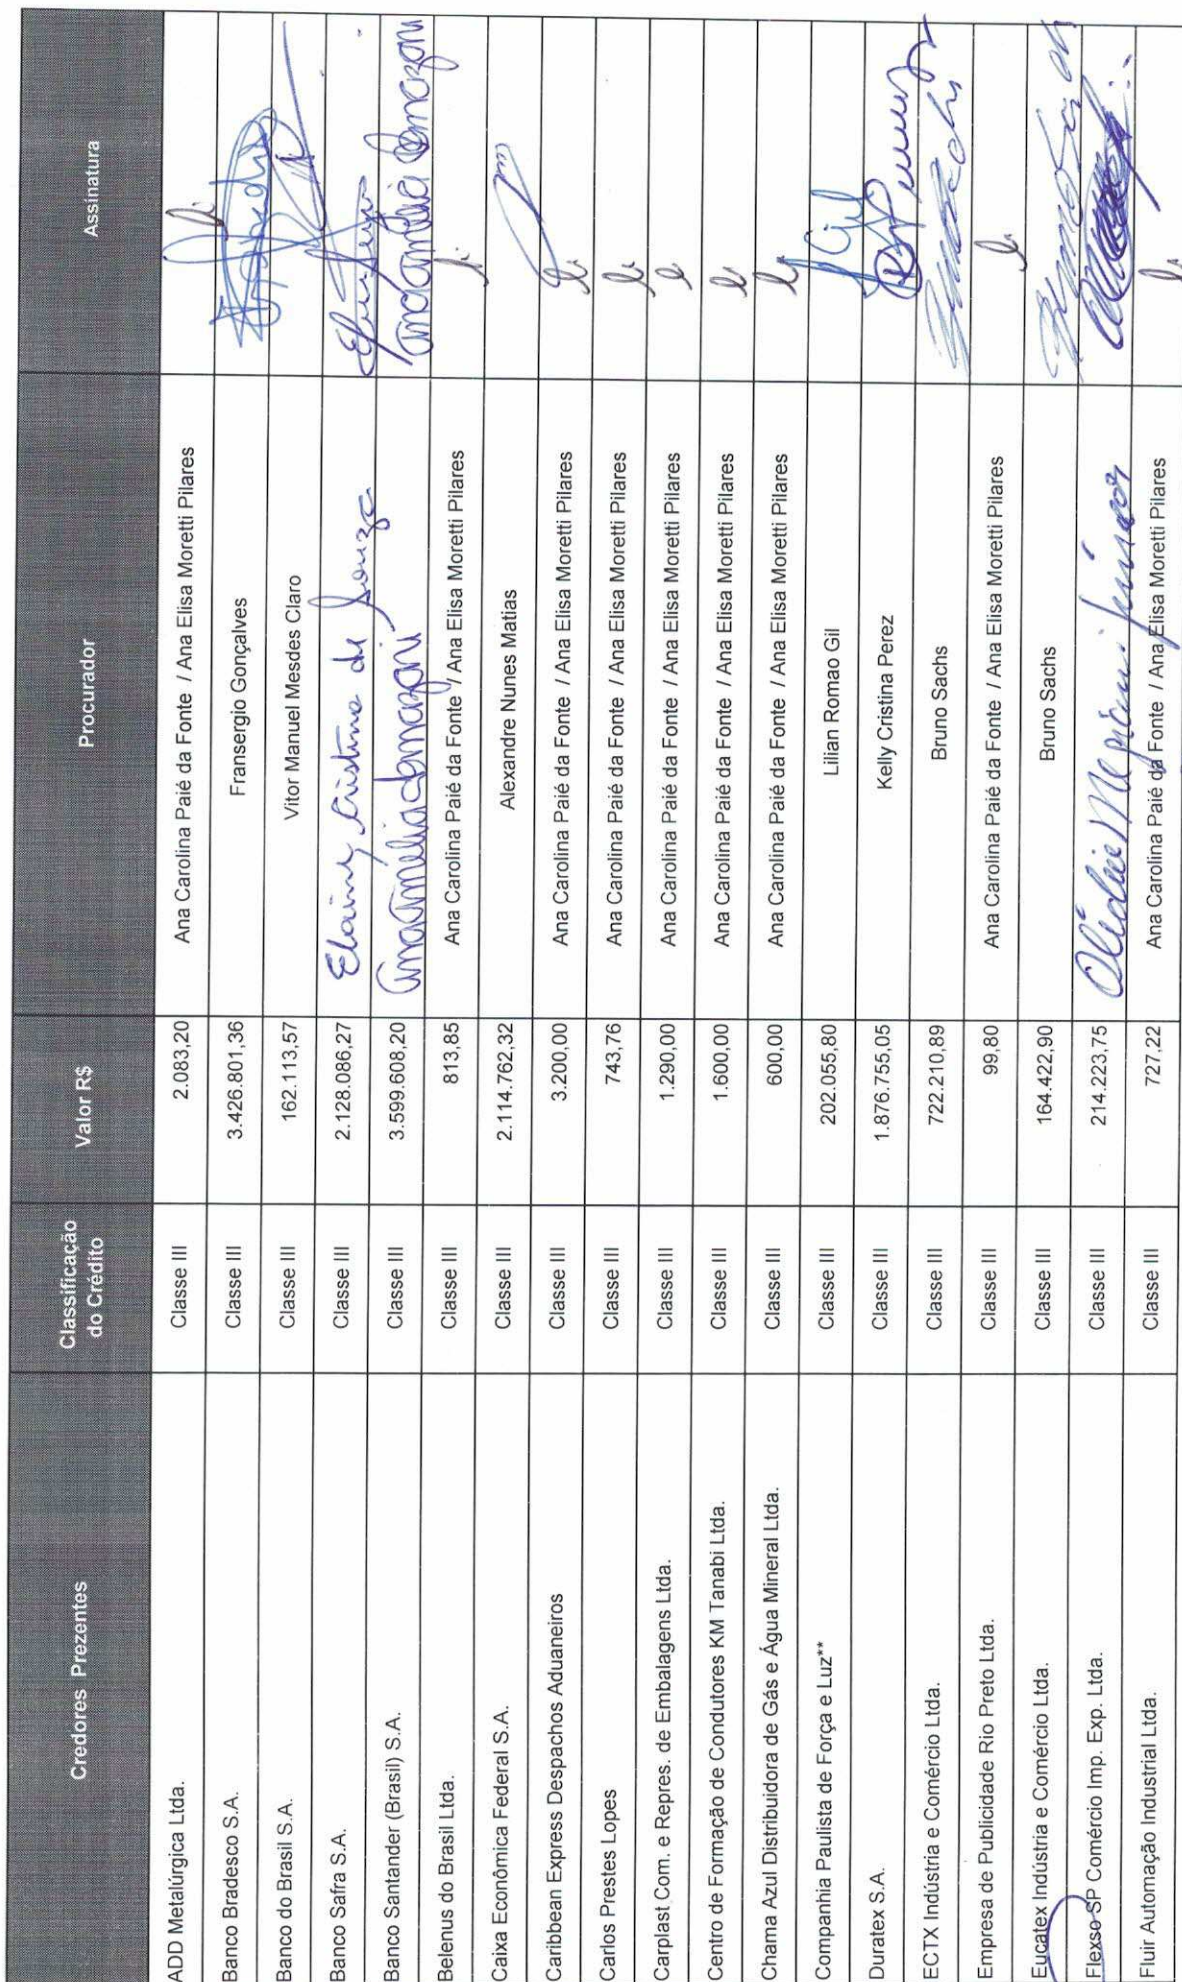 Credores Prezentes Classificação do Crédito Valor R$ Procurador Assinatura
ADD Metalúrgica Ltda. Classe III 2.083,20 Ana Carolina Paié da Fonte / Ana Elisa Moretti Pilares
Banco Bradesco S.A. Classe III 3.426.801,36 Fransergio Gonçalves
Banco do Brasil S.A. Classe III 162.113,57 Vitor Manuel Mesdes Claro
Banco Safra S.A. Classe III 2.128.086,27 Elaine Cristina de Souza
Banco Santander (Brasil) S.A. Classe III 3.599.608,20
Belenus do Brasil Ltda. Classe III 813,85 Ana Carolina Paié da Fonte / Ana Elisa Moretti Pilares
Caixa Econômica Federal S.A. Classe III 2.114.762,32 Alexandre Nunes Matias
Caribbean Express Despachos Aduaneiros Classe III 3.200,00 Ana Carolina Paié da Fonte / Ana Elisa Moretti Pilares
Carlos Prestes Lopes Classe III 743,76 Ana Carolina Paié da Fonte / Ana Elisa Moretti Pilares
Carplast Com. e Repres. de Embalagens Ltda. Classe III 1.290,00 Ana Carolina Paié da Fonte / Ana Elisa Moretti Pilares
Centro de Formação de Condutores KM Tanabi Ltda. Classe III 1.600,00 Ana Carolina Paié da Fonte / Ana Elisa Moretti Pilares
Chama Azul Distribuidora de Gás e Água Mineral Ltda. Classe III 600,00 Ana Carolina Paié da Fonte / Ana Elisa Moretti Pilares
Companhia Paulista de Força e Luz** Classe III 202.055,80 Lilian Romao Gil
Duratex S.A. Classe III 1.876.755,05 Kelly Cristina Perez
ECTX Indústria e Comércio Ltda. Classe III 722.210,89 Bruno Sachs
Empresa de Publicidade Rio Preto Ltda. Classe III 99,80 Ana Carolina Paié da Fonte / Ana Elisa Moretti Pilares
Eucatex Indústria e Comércio Ltda. Classe III 164.422,90 Bruno Sachs
Flexso SP Comércio Imp. Exp. Ltda. Classe III 214.223,75
Fluir Automação Industrial Ltda. Classe III 727,22 Ana Carolina Paié da Fonte / Ana Elisa Moretti Pilares